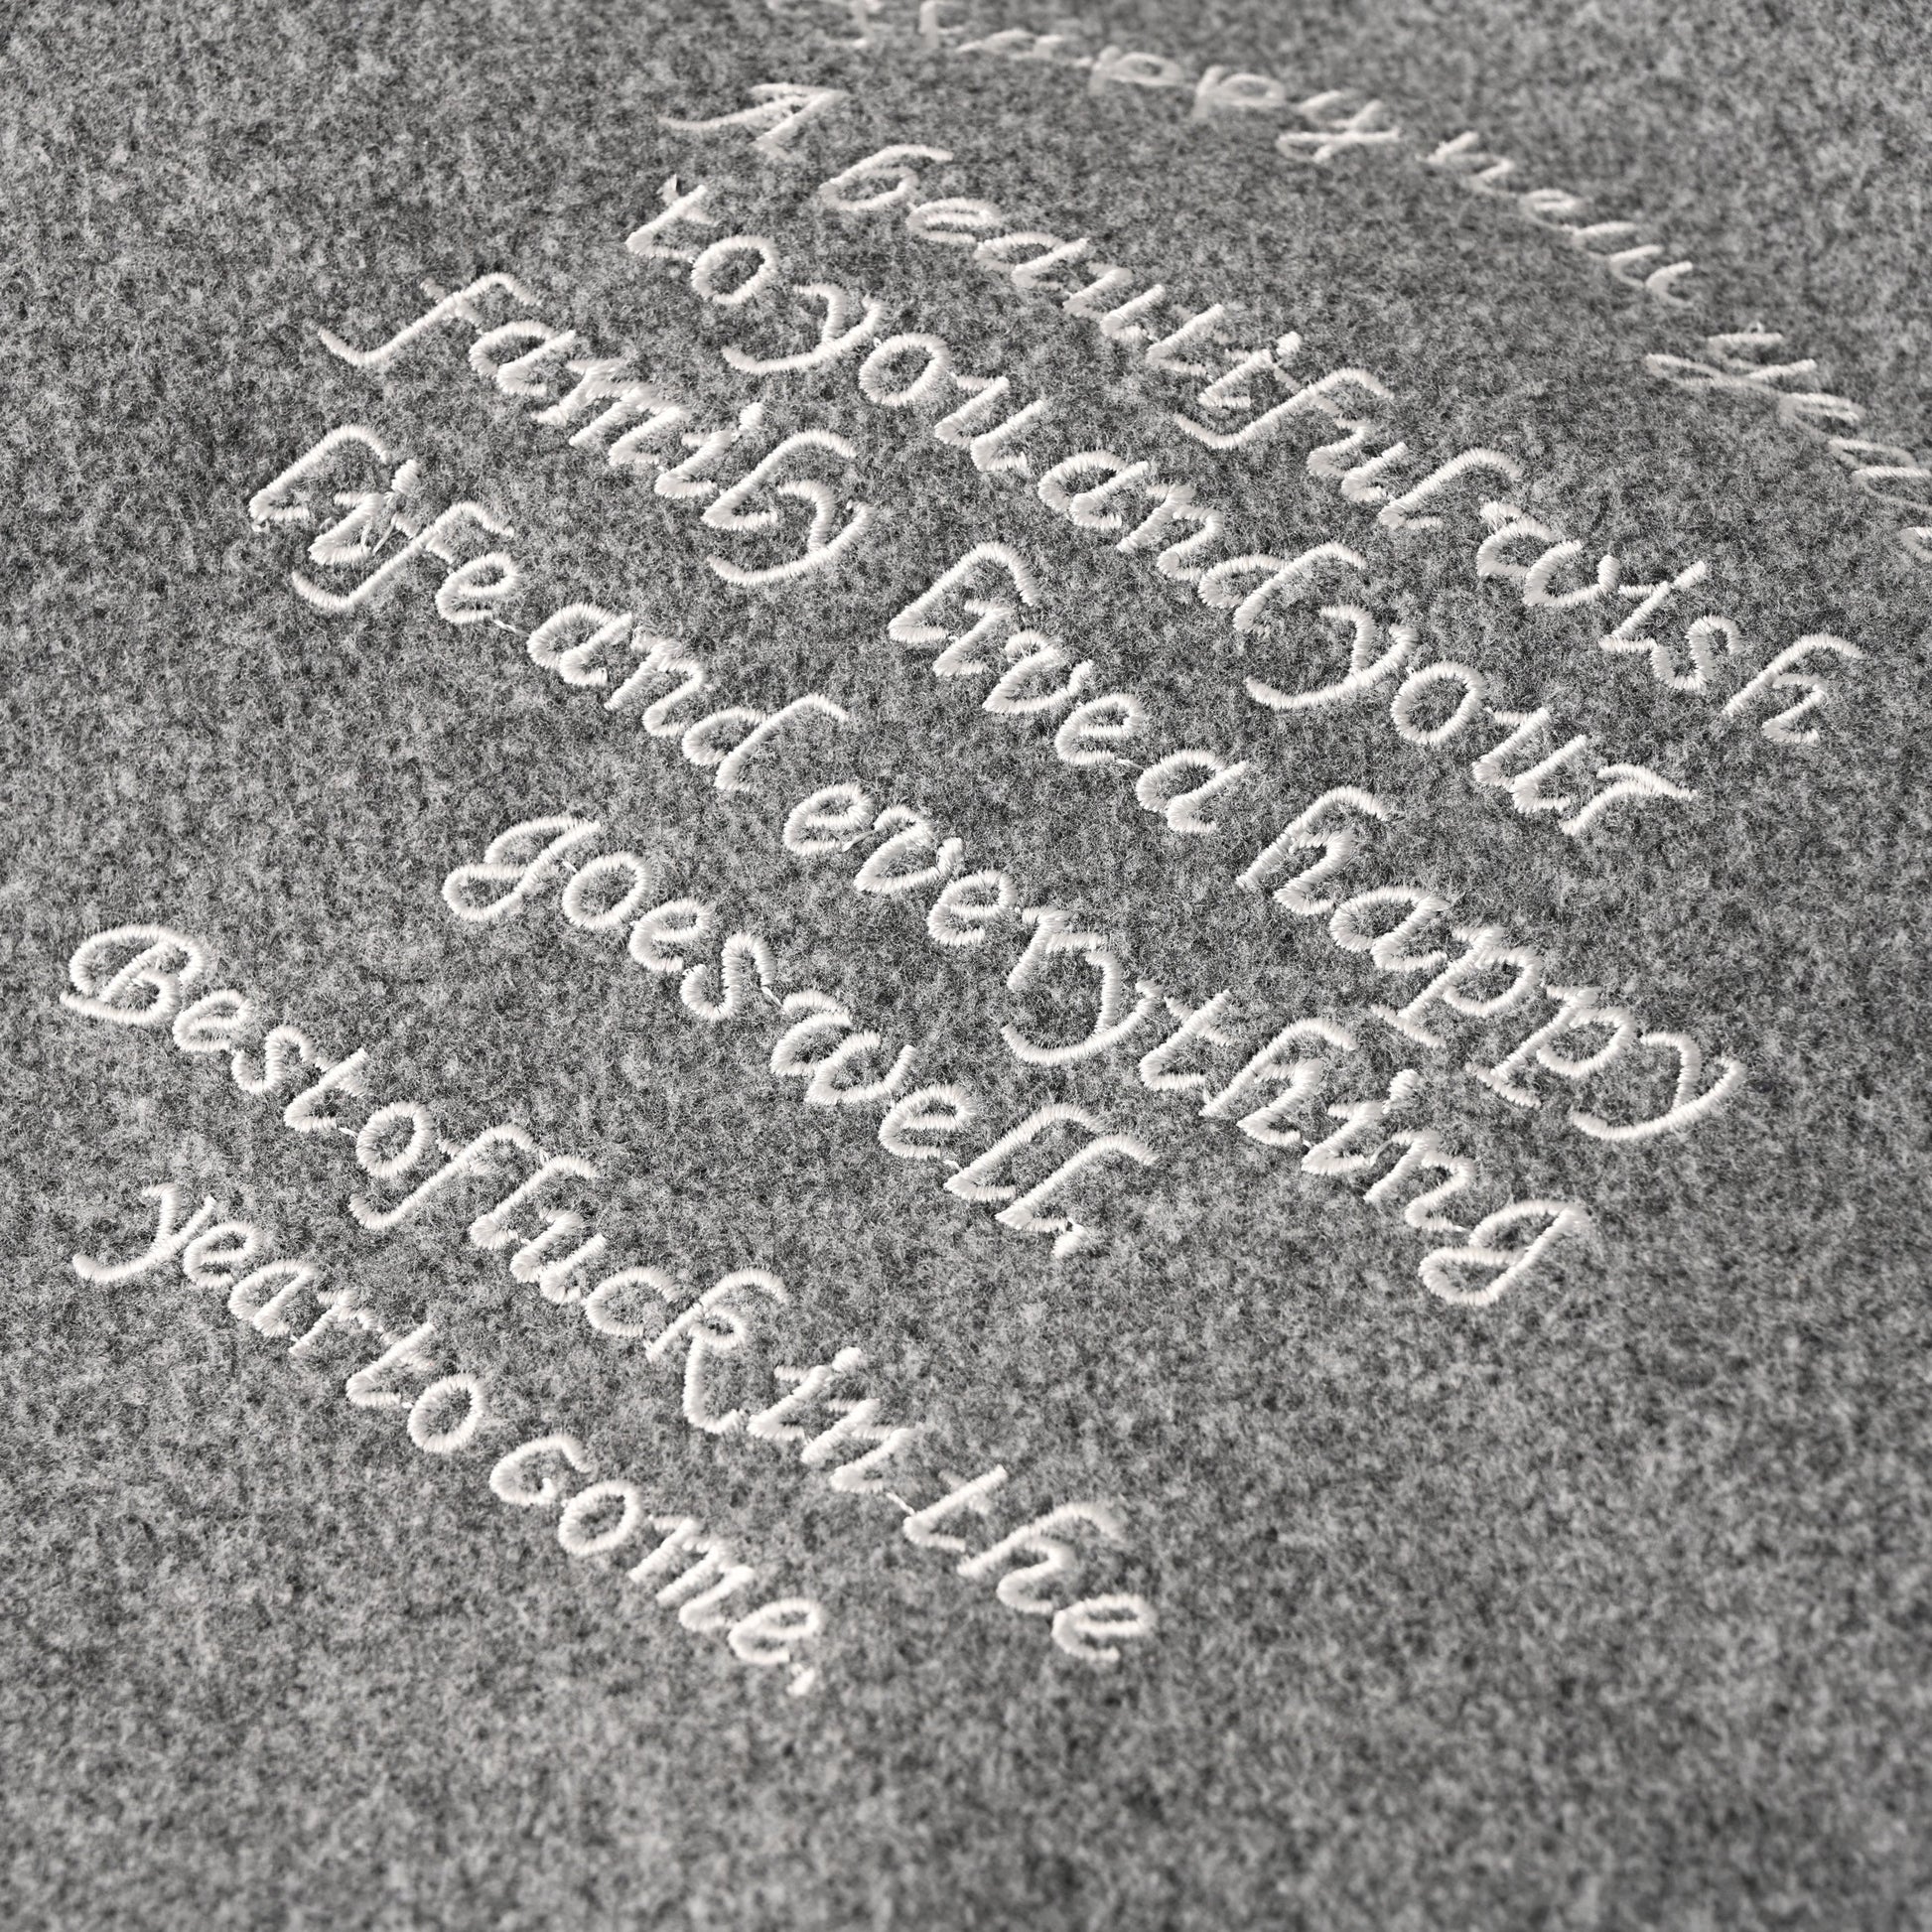 Happy new year
A beautiful wish
to you and your
family lived happy
life and everything
goes well
Best of luck in the
year to Come.